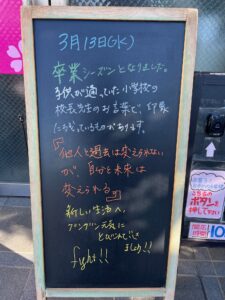 3月13日(水)
卒業シーズンとなりました。
子供が通っていた小学校の
校長先生のお言葉で、印象
に残っているものがあります。
『他人と過去は変えられない
が、自分と未来は
変えられる』
新しい生活へ
フンフン元気に
とびこんでいき
ましょう!!
fight!!
こちらの
ボタンを
押して下さい
10